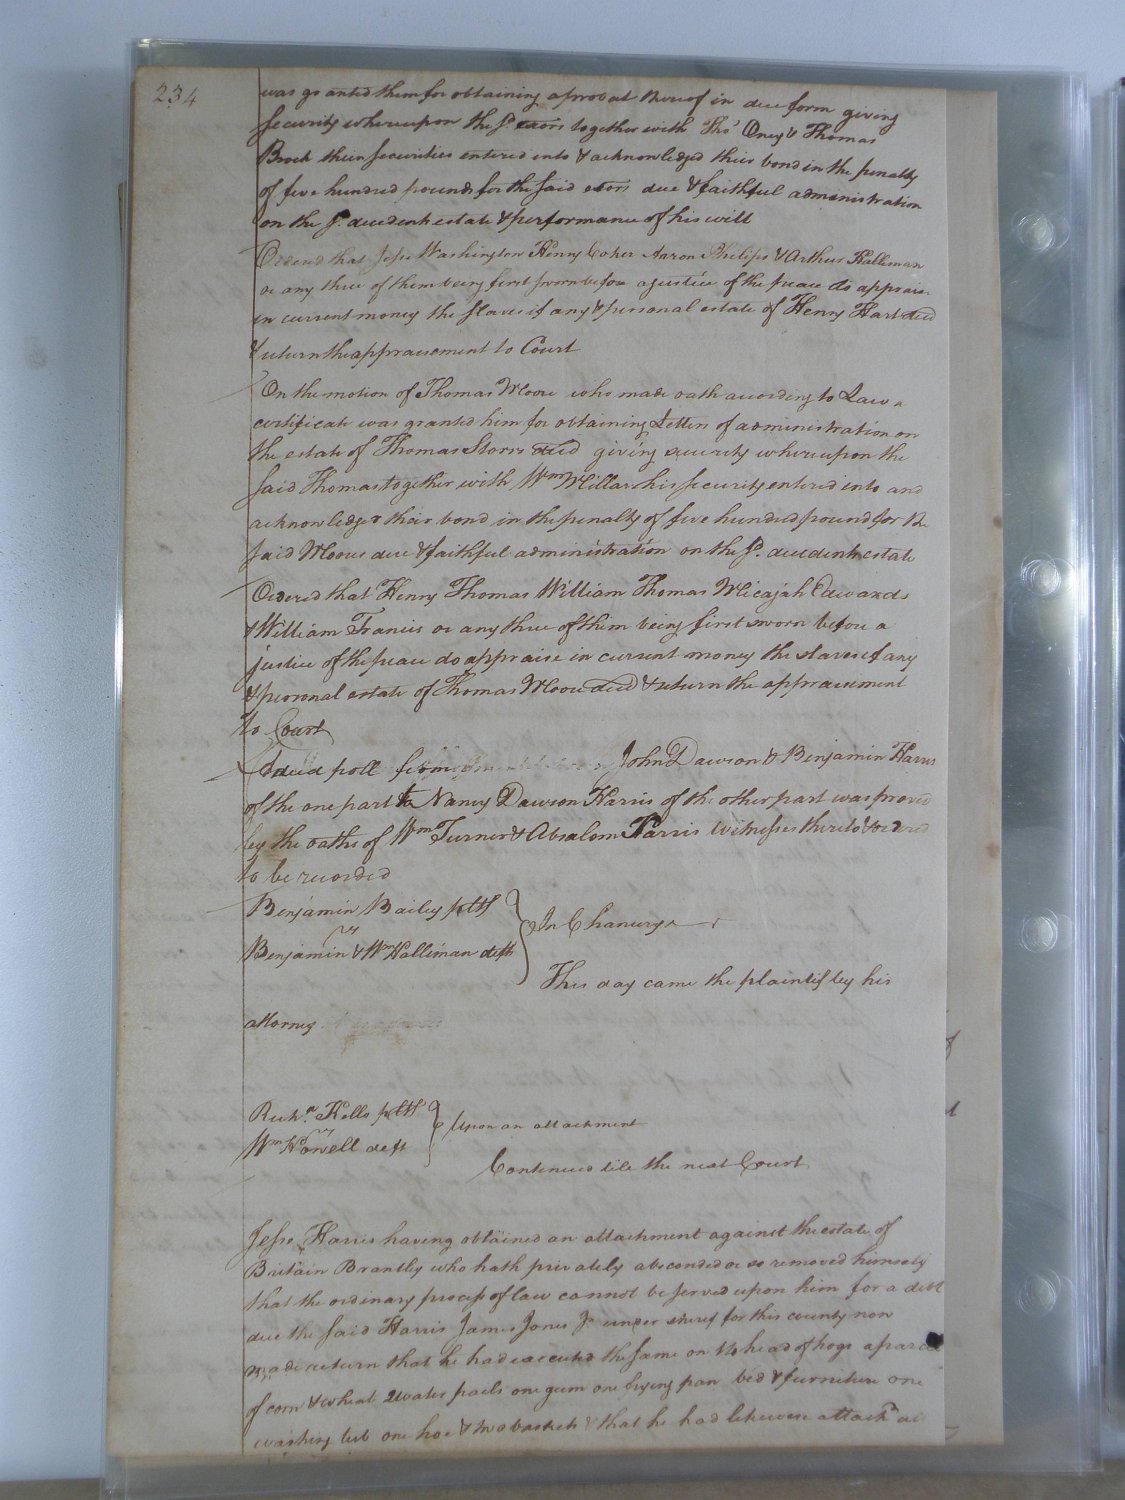 234
was granted them for obtaining a probat thereof in due form giving
security whereupon the sd. exors together with Thos Oney & Thomas
Brock their securities entered into & acknowledged their bond in the penalty
of five hundred pounds for the said exors due & faithful administration
on the sd. decedents estate & performance of his will
Ordered that Jesse Washington Henry Coker Aaron Philips & Arthur Halleman
or any three of them being first sworn before a justice of the peace do appraise
in current money the slaves if any & personal estate of Henry Hart decd
& return the appraisement to Court
On the motion of Thomas Moore who made oath according to Law a
certificate was granted him for obtaining Letters of administration on
the estate of Thomas Storrs decd giving security whereupon the
said Thomas together with Wm Millar his security entered into and
acknowledged their bond in the penalty of five hundred pound for the
said Moores due & faithful administration on the sd. decedents estate
Ordered that Henry Thomas William Thomas Micajah Edwards
& William Francis or any three of them being first sworn before a
justice of the peace do appraise in current money the slaves if any
& personal estate of Thomas Moore decd & return the appraisement
to Court
A deed poll from John Dawson & Benjamin Harris
of the one part to Nancy Dawson Harris of the other part was proved
by the oaths of Wm Turner & Absalom Harris witnesses thereto & ordered
to be recorded
Benjamin Bailey pltf
vs
Benjamin & Wm Halliman defts
In Chancery
This day came the plaintif by his
attorney
Richd. Kello pltf
vs
Wm Howell deft
Upon an attachment
Continued till the next Court
Jesse Harris having obtained an attachment against the estate of
Britain Brantley who hath privately absconded or so removed himself
that the ordinary process of law cannot be served upon him for a debt
due the said Harris James Jones Jr under sheref for this county now
made return that he had executed the same on 14 head of hogs a parcel
of corn & wheat 2 water pails one gum one frying pan bed & furniture one
washing tub one hoe & two baskets & that he had likewise attachd